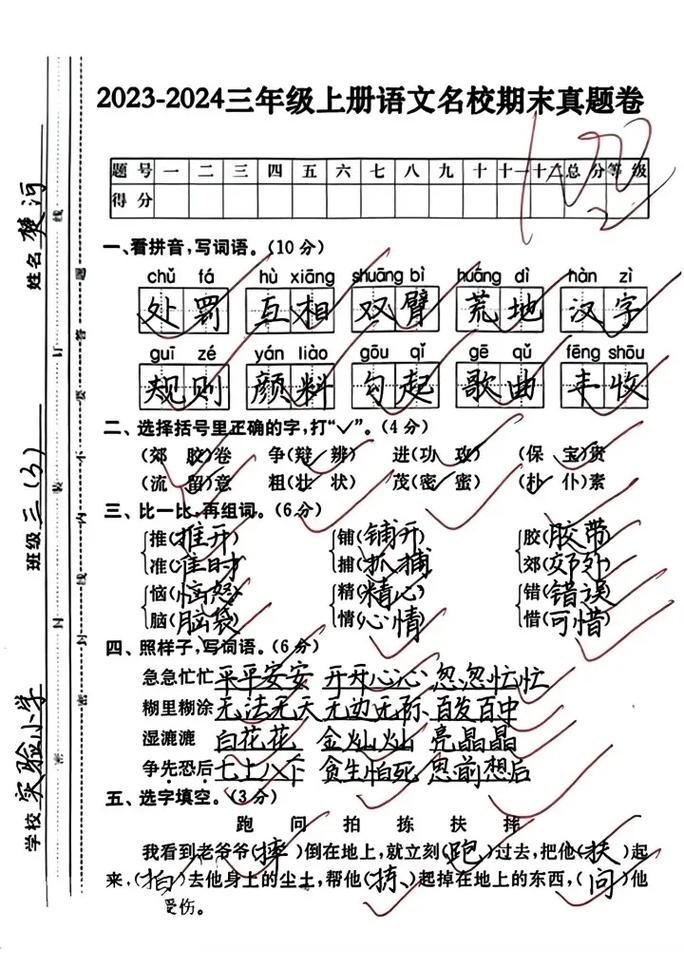 2023-2024三年级上册语文名校期末真题卷
100
题号 一 二 三 四 五 六 七 八 九 十 十一 十二 总分 等级
得分
一、看拼音,写词语。(10分)
chǔ fá hù xiāng shuāng bì huāng dì hàn zì
处罚 互相 双臂 荒地 汉字
guī zé yán liào gōu qǐ gē qǔ fēng shōu
规则 颜料 勾起 歌曲 丰收
二、选择括号里正确的字,打“✓”。(4分)
(郊 胶)卷 争(辩 辨) 进(功 攻) (保 宝)贵
(流 留)意 粗(壮 状) 茂(密 蜜) (扑 仆)素
三、比一比,再组词。(6分)
推(推开) 铺(铺开) 胶(胶带)
准(准时) 捕(抓捕) 郊(郊外)
恼(恼怒) 精(精心) 错(错误)
脑(脑袋) 情(心情) 惜(可惜)
四、照样子,写词语。(6分)
急急忙忙 平平安安 开开心心 忽忽忙忙
糊里糊涂 无法无天 无边无际 百发百中
湿漉漉 白花花 金灿灿 亮晶晶
争先恐后 七上八下 贪生怕死 思前想后
五、选字填空。(3分)
跑 问 拍 拣 扶 摔
我看到老爷爷(摔)倒在地上,就立刻(跑)过去,把他(扶)起
来,(拍)去他身上的尘土,帮他(拣)起掉在地上的东西,(问)他
受伤。
学校 实验小学 班级 三(3) 姓名 楚河